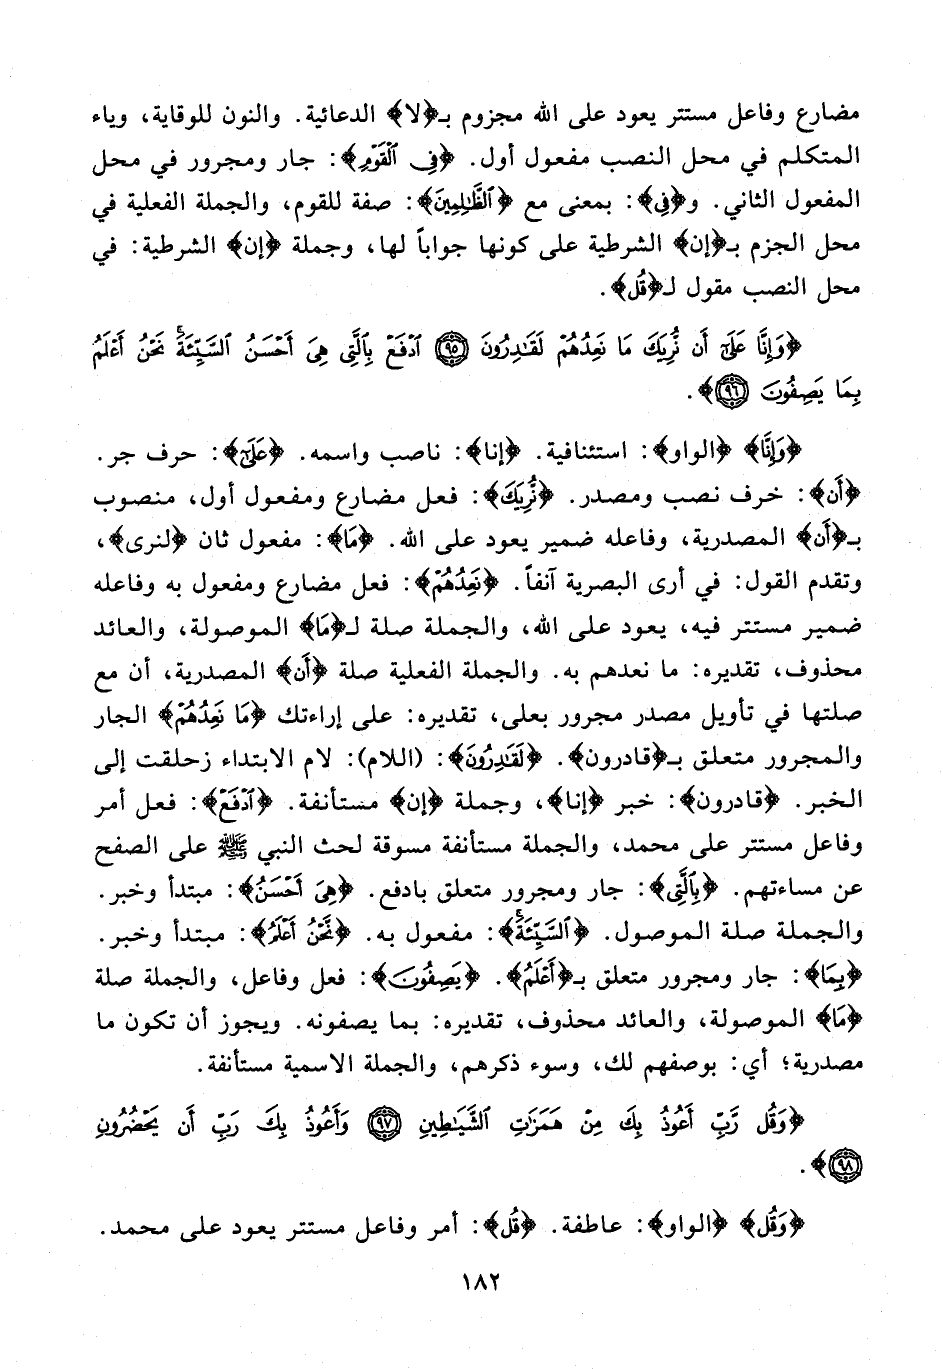 مضارع وفاعل مستتر يعود على الله مجزوم بـ﴿لا﴾ الدعائية. والنون للوقاية، وياء
المتكلم في محل النصب مفعول أول. ﴿فِي ٱلْقَوْمِ﴾: جار ومجرور في محل
المفعول الثاني. و﴿فِي﴾: بمعنى مع ﴿ٱلظَّٰلِمِينَ﴾: صفة للقوم، والجملة الفعلية في
محل الجزم بـ﴿إن﴾ الشرطية على كونها جواباً لها، وجملة ﴿إن﴾ الشرطية: في
محل النصب مقول لـ﴿قُل﴾.
﴿وَإِنَّا عَلَىٰٓ أَن نُّرِيَكَ مَا نَعِدُهُمْ لَقَٰدِرُونَ ٩٥ ٱدْفَعْ بِٱلَّتِي هِيَ أَحْسَنُ ٱلسَّيِّئَةَ ۚ نَحْنُ أَعْلَمُ
بِمَا يَصِفُونَ ٩٦﴾.
﴿وَإِنَّا﴾ ﴿الواو﴾: استئنافية. ﴿إنا﴾: ناصب واسمه. ﴿عَلَىٰٓ﴾: حرف جر.
﴿أَن﴾: خرف نصب ومصدر. ﴿نُّرِيَكَ﴾: فعل مضارع ومفعول أول، منصوب
بـ﴿أَن﴾ المصدرية، وفاعله ضمير يعود على الله. ﴿مَا﴾: مفعول ثان ﴿لنرى﴾،
وتقدم القول: في أرى البصرية آنفاً. ﴿نَعِدُهُمْ﴾: فعل مضارع ومفعول به وفاعله
ضمير مستتر فيه، يعود على الله، والجملة صلة لـ﴿مَا﴾ الموصولة، والعائد
محذوف، تقديره: ما نعدهم به. والجملة الفعلية صلة ﴿أَن﴾ المصدرية، أن مع
صلتها في تأويل مصدر مجرور بعلى، تقديره: على إراءتك ﴿مَا نَعِدُهُمْ﴾ الجار
والمجرور متعلق بـ﴿قادرون﴾. ﴿لَقَٰدِرُونَ﴾: (اللام): لام الابتداء زحلقت إلى
الخبر. ﴿قادرون﴾: خبر ﴿إنا﴾، وجملة ﴿إن﴾ مستأنفة. ﴿ٱدْفَعْ﴾: فعل أمر
وفاعل مستتر على محمد، والجملة مستأنفة مسوقة لحث النبي ﷺ على الصفح
عن مساءتهم. ﴿بِٱلَّتِي﴾: جار ومجرور متعلق بادفع. ﴿هِيَ أَحْسَنُ﴾: مبتدأ وخبر.
والجملة صلة الموصول. ﴿ٱلسَّيِّئَةَ ۚ﴾: مفعول به. ﴿نَّحْنُ أَعْلَمُ﴾: مبتدأ وخبر.
﴿بِمَا﴾: جار ومجرور متعلق بـ﴿أَعْلَمُ﴾. ﴿يَصِفُونَ﴾: فعل وفاعل، والجملة صلة
﴿مَا﴾ الموصولة، والعائد محذوف، تقديره: بما يصفونه. ويجوز أن تكون ما
مصدرية؛ أي: بوصفهم لك، وسوء ذكرهم، والجملة الاسمية مستأنفة.
﴿وَقُل رَّبِّ أَعُوذُ بِكَ مِنْ هَمَزَٰتِ ٱلشَّيَٰطِينِ ٩٧ وَأَعُوذُ بِكَ رَبِّ أَن يَحْضُرُونِ
٩٨﴾.
﴿وَقُل﴾ ﴿الواو﴾: عاطفة. ﴿قُل﴾: أمر وفاعل مستتر يعود على محمد.
١٨٢